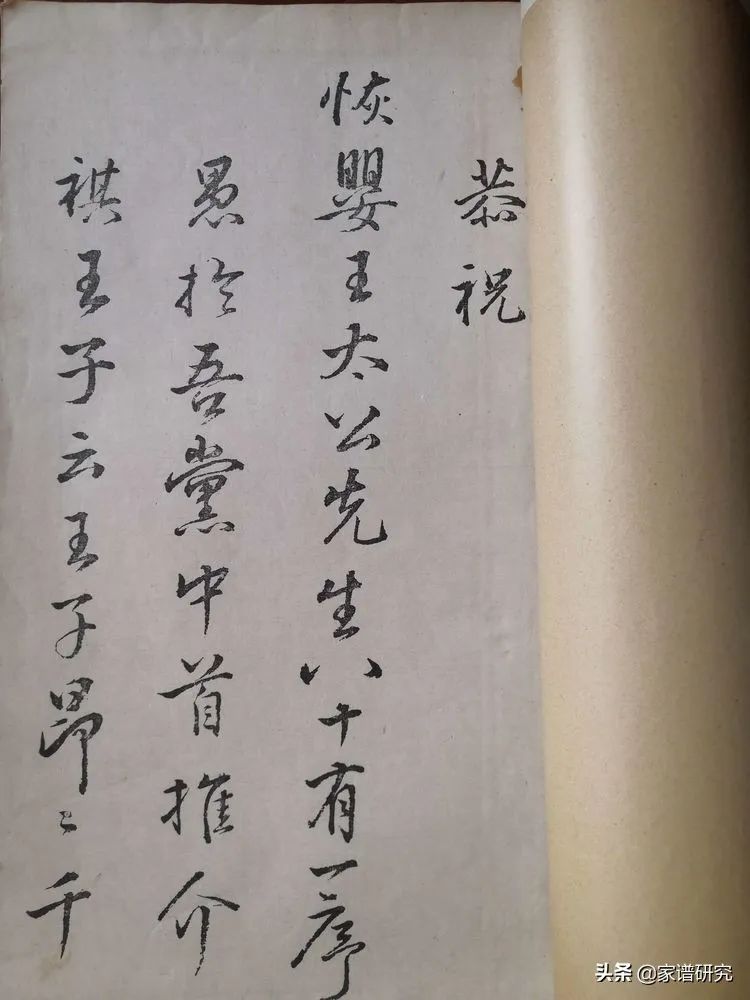 恭祝
恢嬰王太公先生八十有一序
愚於吾黨中首推介
祺王子云王子昂〻千
头条 @家谱研究